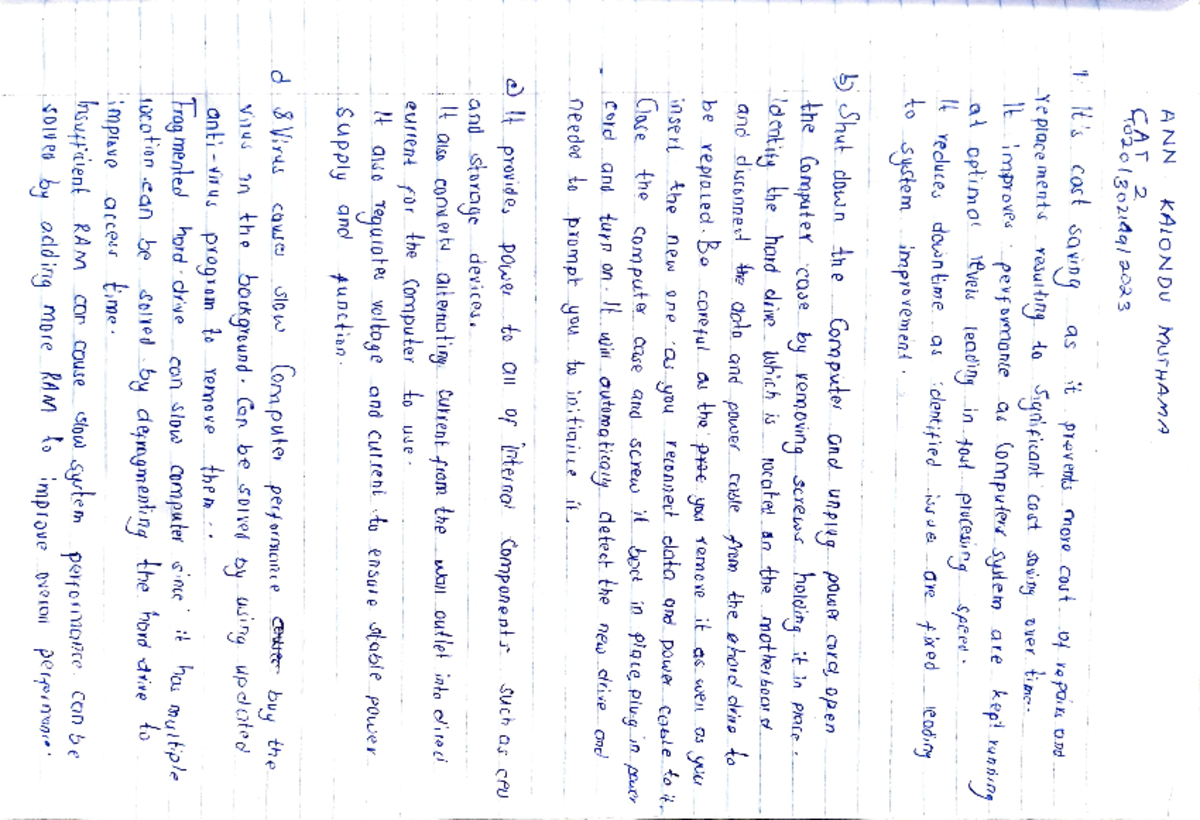 ANN KALONDU MUTHAMA
CAT 2
1. It's cost saving as it prevents more cost of repairs and
replacements resulting to significant cost saving over time.
It improves performance as Computers system are kept running
at optimal levels leading in fast processing speed.
It reduces downtime as identified issues are fixed leading
to system improvement.
b) Shut down the Computer and unplug power cord, open
the Computer case by removing screws holding it in place.
identify the hard drive which is located on the motherboard
and disconnect the data and power cable from the hard drive to
be replaced. Be careful as the you remove it as well as you
insert the new one as you reconnect data and power cable to it.
Close the computer case and screw it back in place, plug in power
cord and turn on. It will automatically detect the new drive and
needed to prompt you to initialize it.
c) It provides power to all of internal components such as CPU
and storage devices.
It also converts alternating current from the wall outlet into direct
current for the computer to use.
It also regulates voltage and current to ensure stable power
supply and function.
d Virus causes slow Computer performance buy the
virus in the background. Can be solved by using updated
anti-virus program to remove them..
Fragmented hard-drive can slow computer since it has multiple
location can be solved by defragmenting the hard drive to
improve access time.
Insufficient RAM can cause slow system performance can be
solved by adding more RAM to improve overall performance.